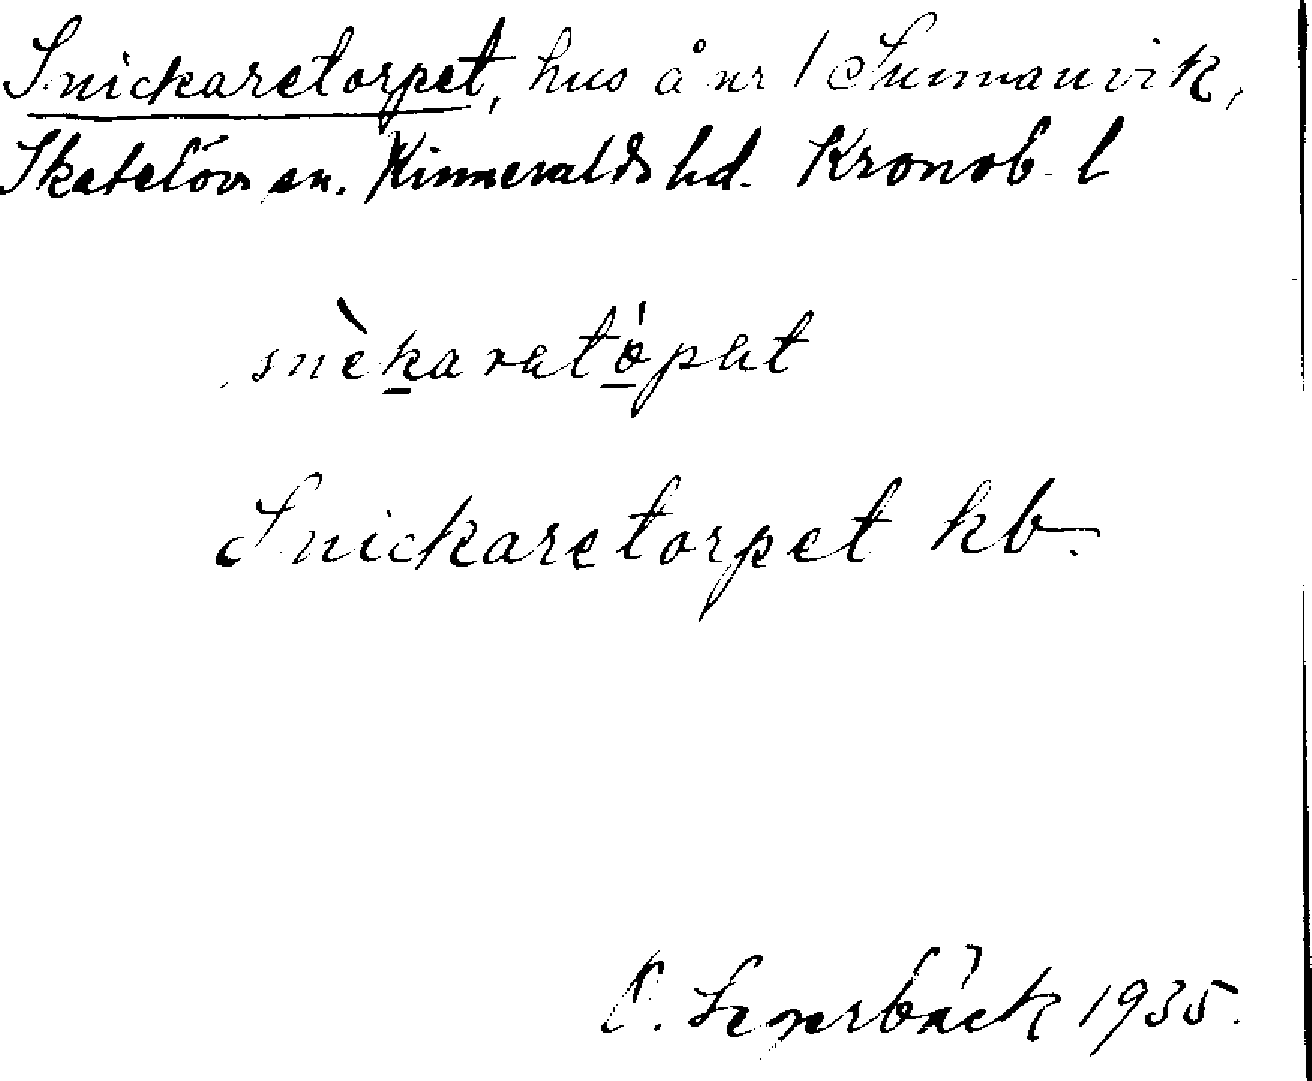 Snickaretorpet, hus å nr 1 Sunnanvik,
Skatelövs sn. Kinnevalds hd. Kronob. l
snèkaratópet
Snickaretorpet kb.
O. 1935.